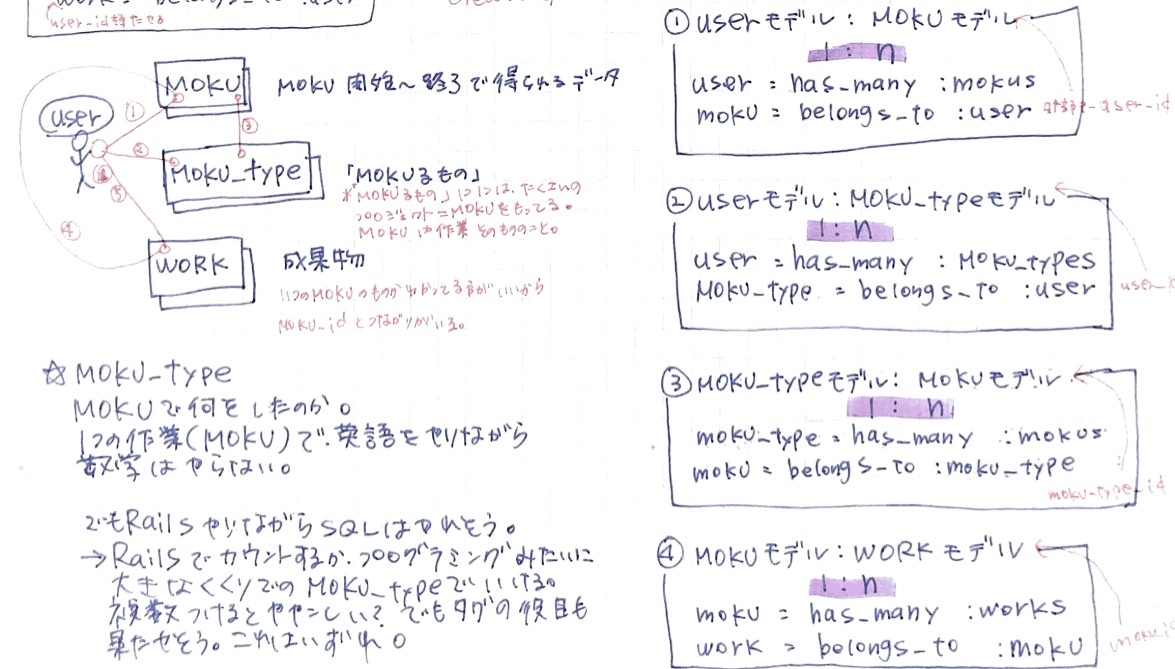 work = belongs_to :user
user_id持たせる
MOKU
MOKU 開始〜終了で得られるデータ
user
①
②
③
MOKU_type
「MOKUるもの」
※「MOKUるもの」1つには、たくさんの
MOKUをもってる。
MOKUは作業そのもののこと。
⑤
④
WORK
成果物
1つのMOKUのものがわかってる方がいいから
MOKU_idとつながりがいる。
☆ MOKU_type
MOKUで何をしたのか。
1つの作業(MOKU)で、英語をやりながら
数学はやらない。
でもRailsやりながらSQLはやれそう。
→Railsでカウントするか、プログラミングみたいに
大きなくくりでのMOKU_typeでいける。
複数つけるとややこしい？でもタグの役目も
果たせそう。これはいずれ。
① userモデル : MOKUモデル
1 : n
user = has_many :mokus
moku = belongs_to :user
user_id
② userモデル : MOKU_typeモデル
1 : n
user = has_many : MOKU_types
MOKU_type = belongs_to :user
③ MOKU_typeモデル : MOKUモデル
1 : n
moku_type = has_many :mokus
moku = belongs_to :moku_type
moku_type_id
④ MOKUモデル : WORKモデル
1 : n
moku = has_many :works
work = belongs_to :moku